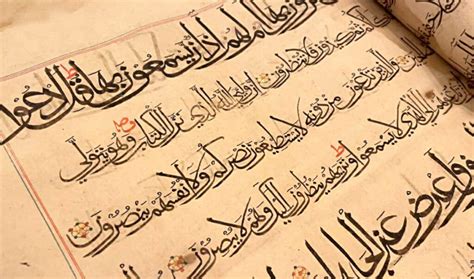 بها أم لهم آذان يسمعون بها قل ادعوا
كيدون فلا تنظرون إن وليي الله الذي نزل الكتاب وهو يتولى
والذين تدعون من دونه لا يستطيعون نصركم ولا أنفسهم ينصرون
الهدى لا يسمعوا وتريهم ينظرون إليك وهم لا يبصرون
وأعرض عن الجا